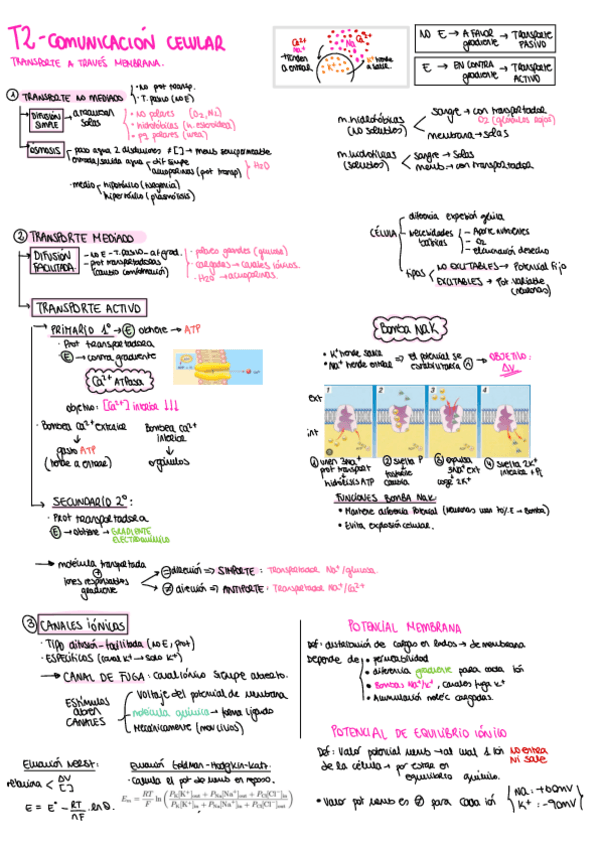 T2-COMUNICACIÓN CELULAR
TRANSPORTE A TRAVÉS MEMBRANA.
Ca2+
Na+
tienden a entrar
Na
K+ tiende a salir
NO E → A FAVOR gradiente → TRANSPORTE PASIVO
E → EN CONTRA gradiente → TRANSPORTE ACTIVO
① TRANSPORTE NO MEDIADO
· No prot transp.
· T. pasivo (no E)
DIFUSIÓN SIMPLE → atraviesan solas
· No polares (O2, N2)
· hidrofóbicas (h. esteroidea)
· pq polares (urea)
ÓSMOSIS → paso agua 2 disoluciones ≠ [ ] → memb semipermeable
entrada/salida agua
dif simple
acuaporinas (prot transp)
H2O
· medio
hipotónico (turgencia)
hipertónico (plasmólisis)
m. hidrofóbicas (no solubles)
sangre → con transportador
O2 (glóbulos rojos)
membrana → solas
m. hidrofílicas (solubles)
sangre → solas
memb → con transportador
② TRANSPORTE MEDIADO
DIFUSIÓN FACILITADA
- no E - T. pasivo - a f grad.
- prot transportadoras (cambio conformación)
· polares grandes (glucosa)
· cargadas → canales iónicos.
· H2O → acuaporinas.
CÉLULA
diferencia expresión génica
Necesidades básicas
- Aporte nutrientes
- O2
- eliminación desecho
tipos
NO EXCITABLES → Potencial fijo
EXCITABLES → Pot variable (neuronas)
TRANSPORTE ACTIVO
→ PRIMARIO 1º → E obtiene → ATP
· Prot transportadora
E → contra gradiente
Ca2+ ATPasa
objetivo: [Ca2+] interior ↓↓↓
· Bombea Ca2+ exterior
↓
gasto ATP
(tiende a entrar)
Bombea Ca2+ interior
↓
orgánulos
Bomba NaK
• K+ tiende salir
• Na+ tiende entrar
⇒ el potencial se
→ OBJETIVO: ΔV
ext
int
1
2
3
4
① unen 3Na+ prot transport
↓
hidrólisis ATP
② suelta P
↓
cambia
③ expulsa 3Na+ ext
coge 2K+
④ suelta 2K+ interior + Pi
FUNCIONES BOMBA NaK
• Mantiene diferencia Potencial (neuronas usan 70% E → Bomba)
• Evita explosión celular.
→ SECUNDARIO 2º:
· Prot transportadora
E → obtiene → GRADIENTE ELECTROQUÍMICO
→ molécula transportada
+
iones responsables gradiente
= dirección ⇒ SIMPORTE: Transportador Na+/glucosa
≠ dirección ⇒ ANTIPORTE: Transportador Na+/Ca2+
③ CANALES IÓNICOS
· TIPO difusión-facilitada (no E, prot)
· ESPECÍFICOS (canal K+ → solo K+)
→ CANAL DE FUGA: canal iónico siempre abierto.
Estímulos abren CANALES
Voltaje del potencial de membrana
molécula química → forma ligando
Mecánicamente
POTENCIAL MEMBRANA
Def: distribución de cargas en lados → de membrana
Depende de
• permeabilidad
• diferencia gradiente para cada ión
• Bombas Na+/K+, canales fuga K+
• Acumulación moléc cargadas.
POTENCIAL DE EQUILIBRIO IÓNICO
Def: Valor potencial memb → al cual 1 ión no entra ni sale
de la célula → por estar en equilibrio químico.
• Valor pot memb en ⊘ para cada ión
Na: +60mV
K+: -90mV
Ecuación NERST:
relaciona
ΔV
[ ]
E = E° - RT/nF · ln Q.
Ecuación Goldman-Hodgkin-Katz.
· Calcula el pot de memb en reposo.
Em = RT/F ln ( PK[K+]out + PNa[Na+]out + PCl[Cl−]in / PK[K+]in + PNa[Na+]in + PCl[Cl−]out )